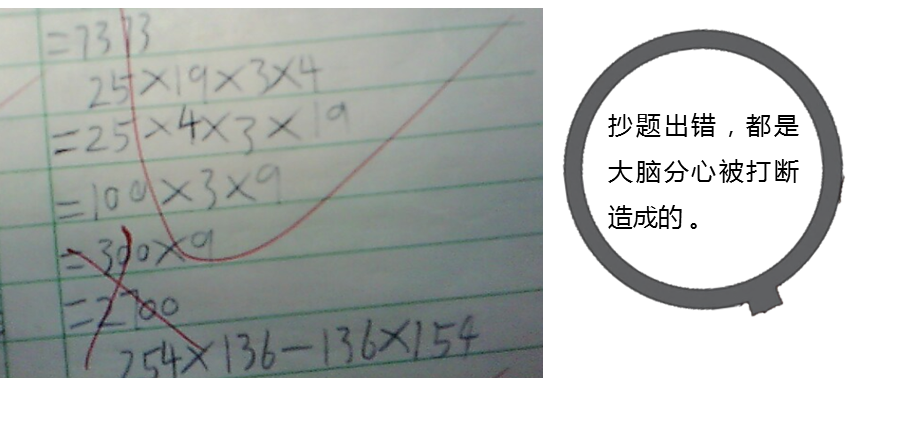 =7373
25×19×3×4
=25×4×3×19
=100×3×9
=300×9
=2700
254×136-136×154
抄题出错，都是
大脑分心被打断
造成的。